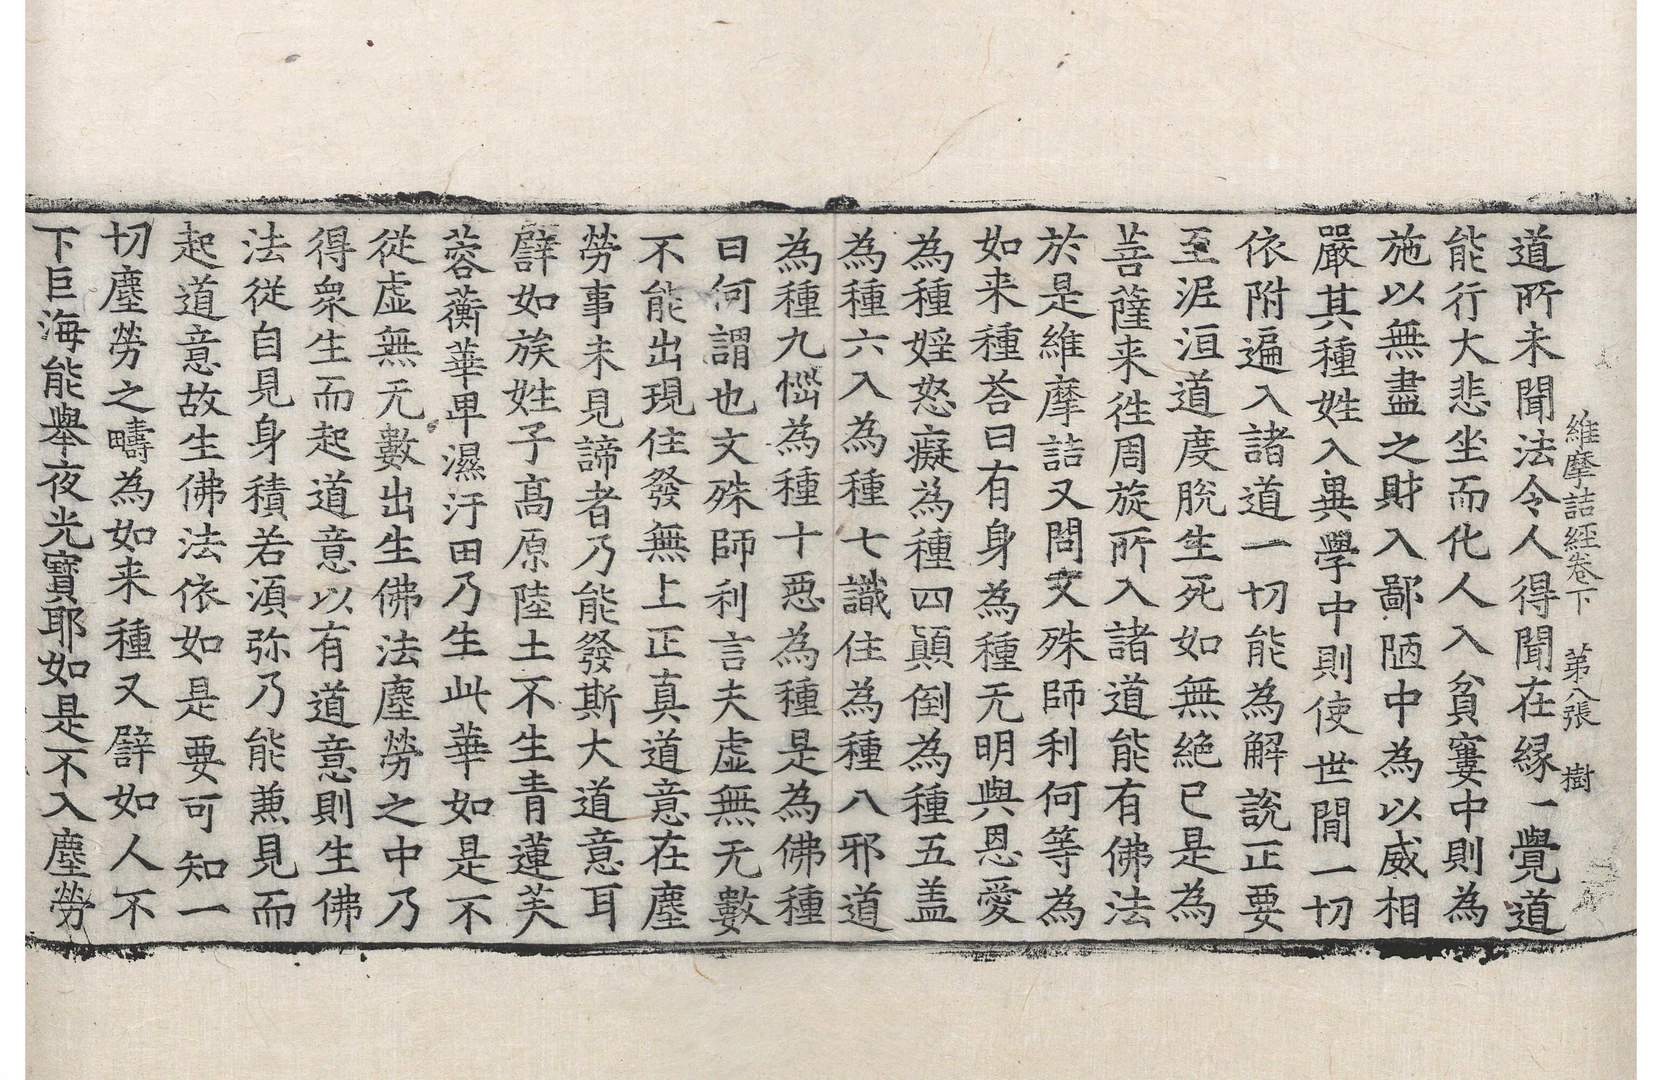 維摩詰經卷下 第八張 樹
道所未聞法令人得聞在縁一覺道
能行大悲坐而化人入貧窶中則為
施以無盡之財入鄙陋中為以威相
嚴其種姓入異學中則使世間一切
依附遍入諸道一切能為解説正要
至泥洹道度脫生死如無絶已是為
菩薩来徃周旋所入諸道能有佛法
於是維摩詰又問文殊師利何等為
如来種荅曰有身為種无明與恩愛
為種婬怒癡為種四顛倒為種五盖
為種六入為種七識住為種八邪道
為種九惱為種十惡為種是為佛種
曰何謂也文殊師利言夫虚無无數
不能出現住發無上正真道意在塵
勞事未見諦者乃能發斯大道意耳
譬如族姓子髙原陸土不生青蓮芙
蓉蘅華卑濕汙田乃生此華如是不
從虚無无數出生佛法塵勞之中乃
得衆生而起道意以有道意則生佛
法從自見身積若湏弥乃能兼見而
起道意故生佛法依如是要可知一
切塵勞之疇為如来種又譬如人不
下巨海能舉夜光寶耶如是不入塵勞